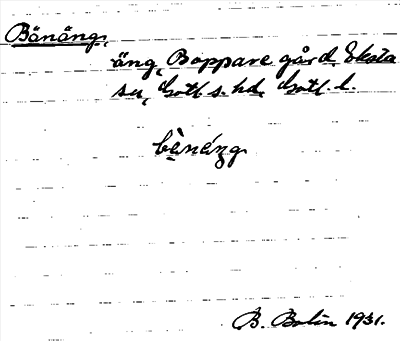 Bänäng,
äng, Boppare gård, Eksta
sn, Gotl. s. hd, Gotl. l.
bènéng
B. Bolin 1931.